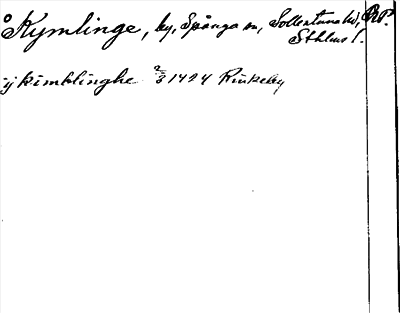 Kymlinge, by, Spånga sn, Sollentuna hd, RP.
Sthlms l.
ij kimblinghe 2/3 1424 Rinkeby